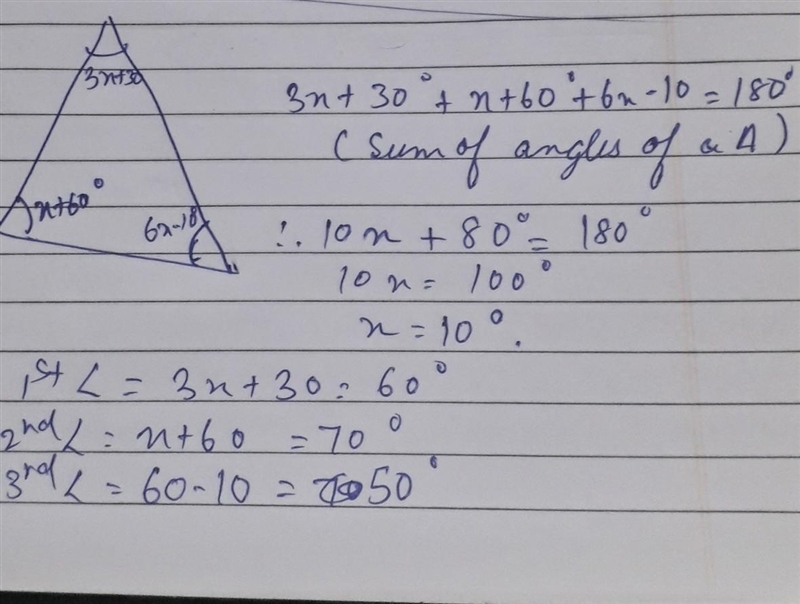 3x+30
x+60°
6x-10
3x + 30° + x+60° + 6x - 10 = 180°
(Sum of angles of a Δ)
∴ 10x + 80° = 180°
10x = 100°
x = 10°.
1st ∠ = 3x + 30 = 60°
2nd ∠ = x+60 = 70°
3rd ∠ = 60 - 10 = 50°